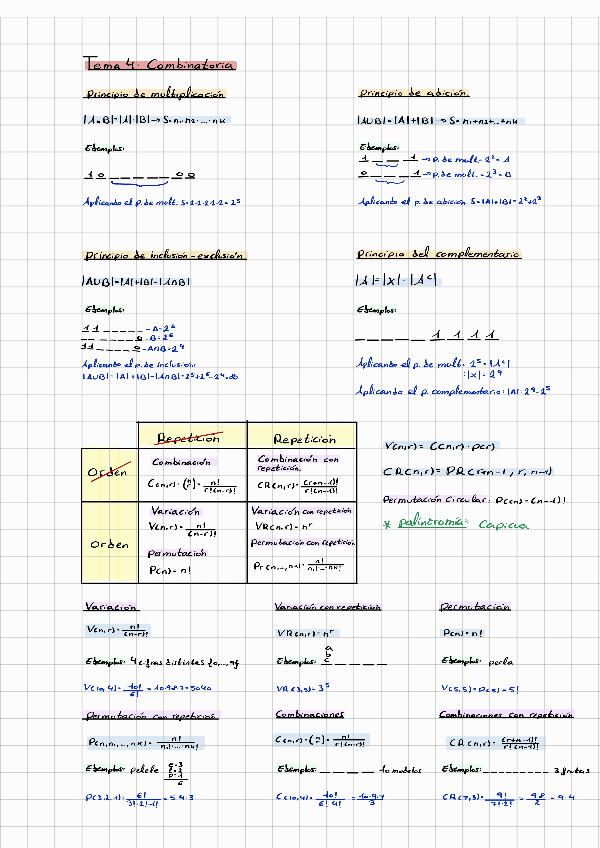 Tema 4. Combinatoria
Principio de multiplicación
|A×B|=|A|·|B| → S=n₁·n₂·...·nk
Ejemplos:
1 0 _ _ _ _ _ 0 0
Aplicando el p. de mult: S=1·1·2·1·2=2⁵
Principio de adición
|AUB|=|A|+|B| → S=n₁+n₂+...+nk
Ejemplos:
1 _ _ 1 → p. de mult. = 2² = A
0 _ _ _ 1 → p. de mult. = 2³ = B
Aplicando el p. de adición S=|A|+|B|=2²+2³
Principio de inclusión-exclusión
|AUB|=|A|+|B|-|A∩B|
Ejemplos:
1 1 _ _ _ _ _ _ - A=2⁶
_ _ _ _ _ _ 0 - B=2⁶
1 1 _ _ _ _ 0 - A∩B=2⁴
Aplicando el p. de inclusión:
|AUB|=|A|+|B|-|A∩B|=2⁵+2⁶-2⁴
Principio del complementario
|A|=|X|-|Aᶜ|
Ejemplo:
_ _ _ _ 1 1 1 1
Aplicando el p. de mult: 2⁵=|Aᶜ|
:|X|=2⁹
Aplicando el p. complementario: |A|=2⁹-2⁵
Repetición
Repetición
Orden
Combinación
C(n,r)=(n r)=n!/r!(n-r)!
Combinación con repetición
CR(n,r)=(r+n-1)!/r!(n-1)!
Orden
Variación
V(n,r)=n!/(n-r)!
Permutación
P(n)=n!
Variación con repetición
VR(n,r)=nʳ
Permutación con repetición
Pr(n₁...,nk)=n!/n₁!...nk!
V(n,r)=C(n,r)·P(r)
CR(n,r)=PR(r+n-1, r, n-1)
Permutación Circular: P(n)=(n-1)!
* palindromía= Capicúa
Variación
V(n,r)=n!/(n-r)!
Ejemplos: 4 cifras distintas {0,...,9}
V(10,4)=10!/6!=10·9·8·7=5040
Variación con repetición
VR(n,r)=nʳ
Ejemplos: a b c _ _ _ _
VR(3,5)=3⁵
Permutación
P(n)=n!
Ejemplo: perla
V(5,5)=P(5)=5!
Permutación con repetición
P(n,n₁,...,nk)=n!/n₁!...nk!
Ejemplos: pelele e=3 l=2 p=1 6
P(3,2,1)=6!/3!·2!·1!=5·4·3
Combinaciones
C(n,r)=(n r)=n!/r!(n-r)!
Ejemplos: _ _ _ _ 10 modelos
C(10,4)=10!/6!·4!=10·9·7/3
Combinaciones con repetición
CR(n,r)=(r+n-1)!/r!(n-1)!
Ejemplos: _ _ _ _ _ _ _ 3 frutas
CR(7,3)=9!/7!·2!=9·8/2=9·4